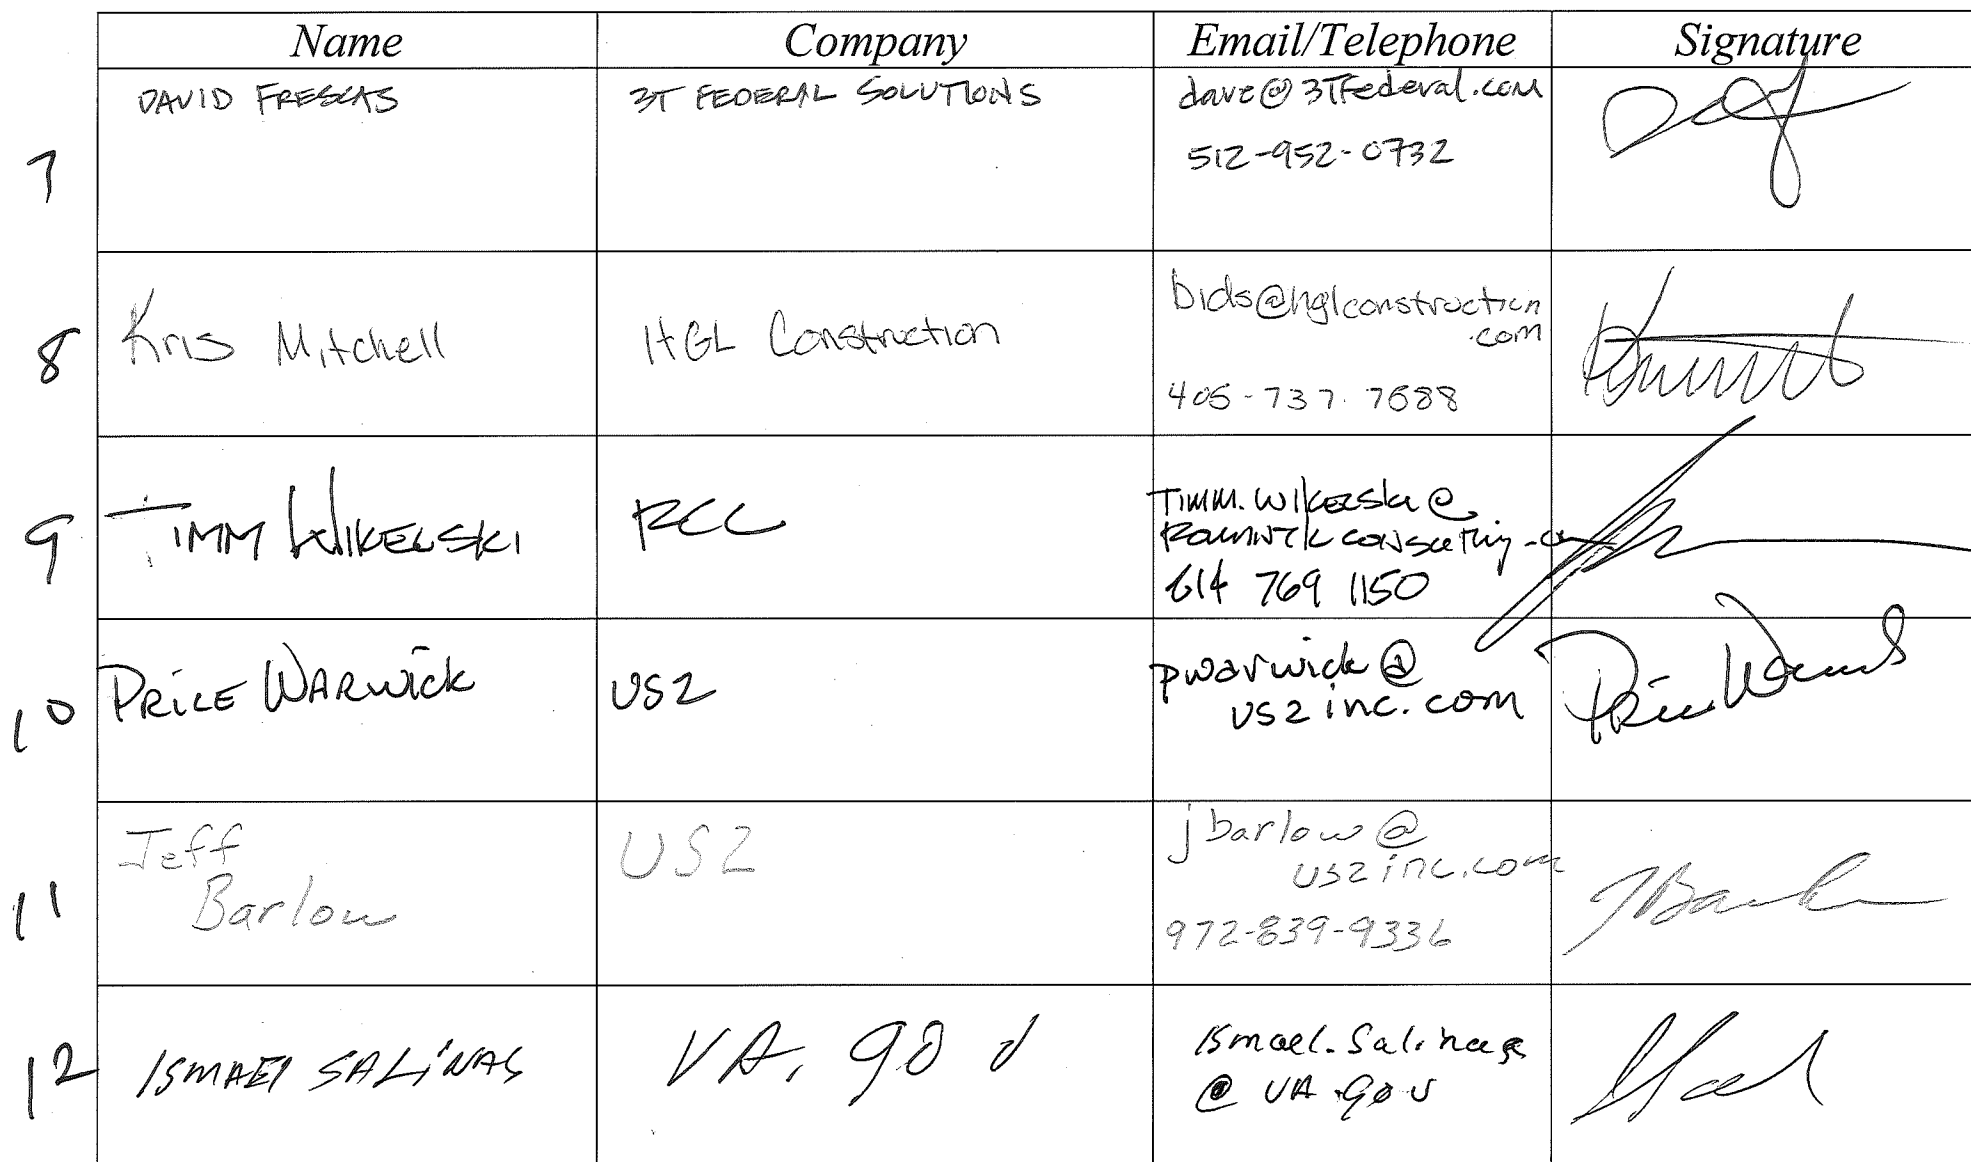 Name Company Email/Telephone Signature
DAVID FRESCAS 3T FEDERAL SOLUTIONS dave@3TFederal.com
512-952-0732
7
Kris Mitchell HGL Construction bids@hglconstruction
.com
8
405-737-7688
TIMM WIKELSKI RCC TIMM.WIKELSKI@
CONSULTING.com
9
614 769 1150
PRICE WARWICK US2 pwarwick@
us2inc.com Price Warwick
10
Jeff US2 jbarlow@
Barlow us2inc.com JBarlow
11
972-839-9336
12 ISMAEl SALiNAS VA. gov Ismael.Salinas
@ VA.gov